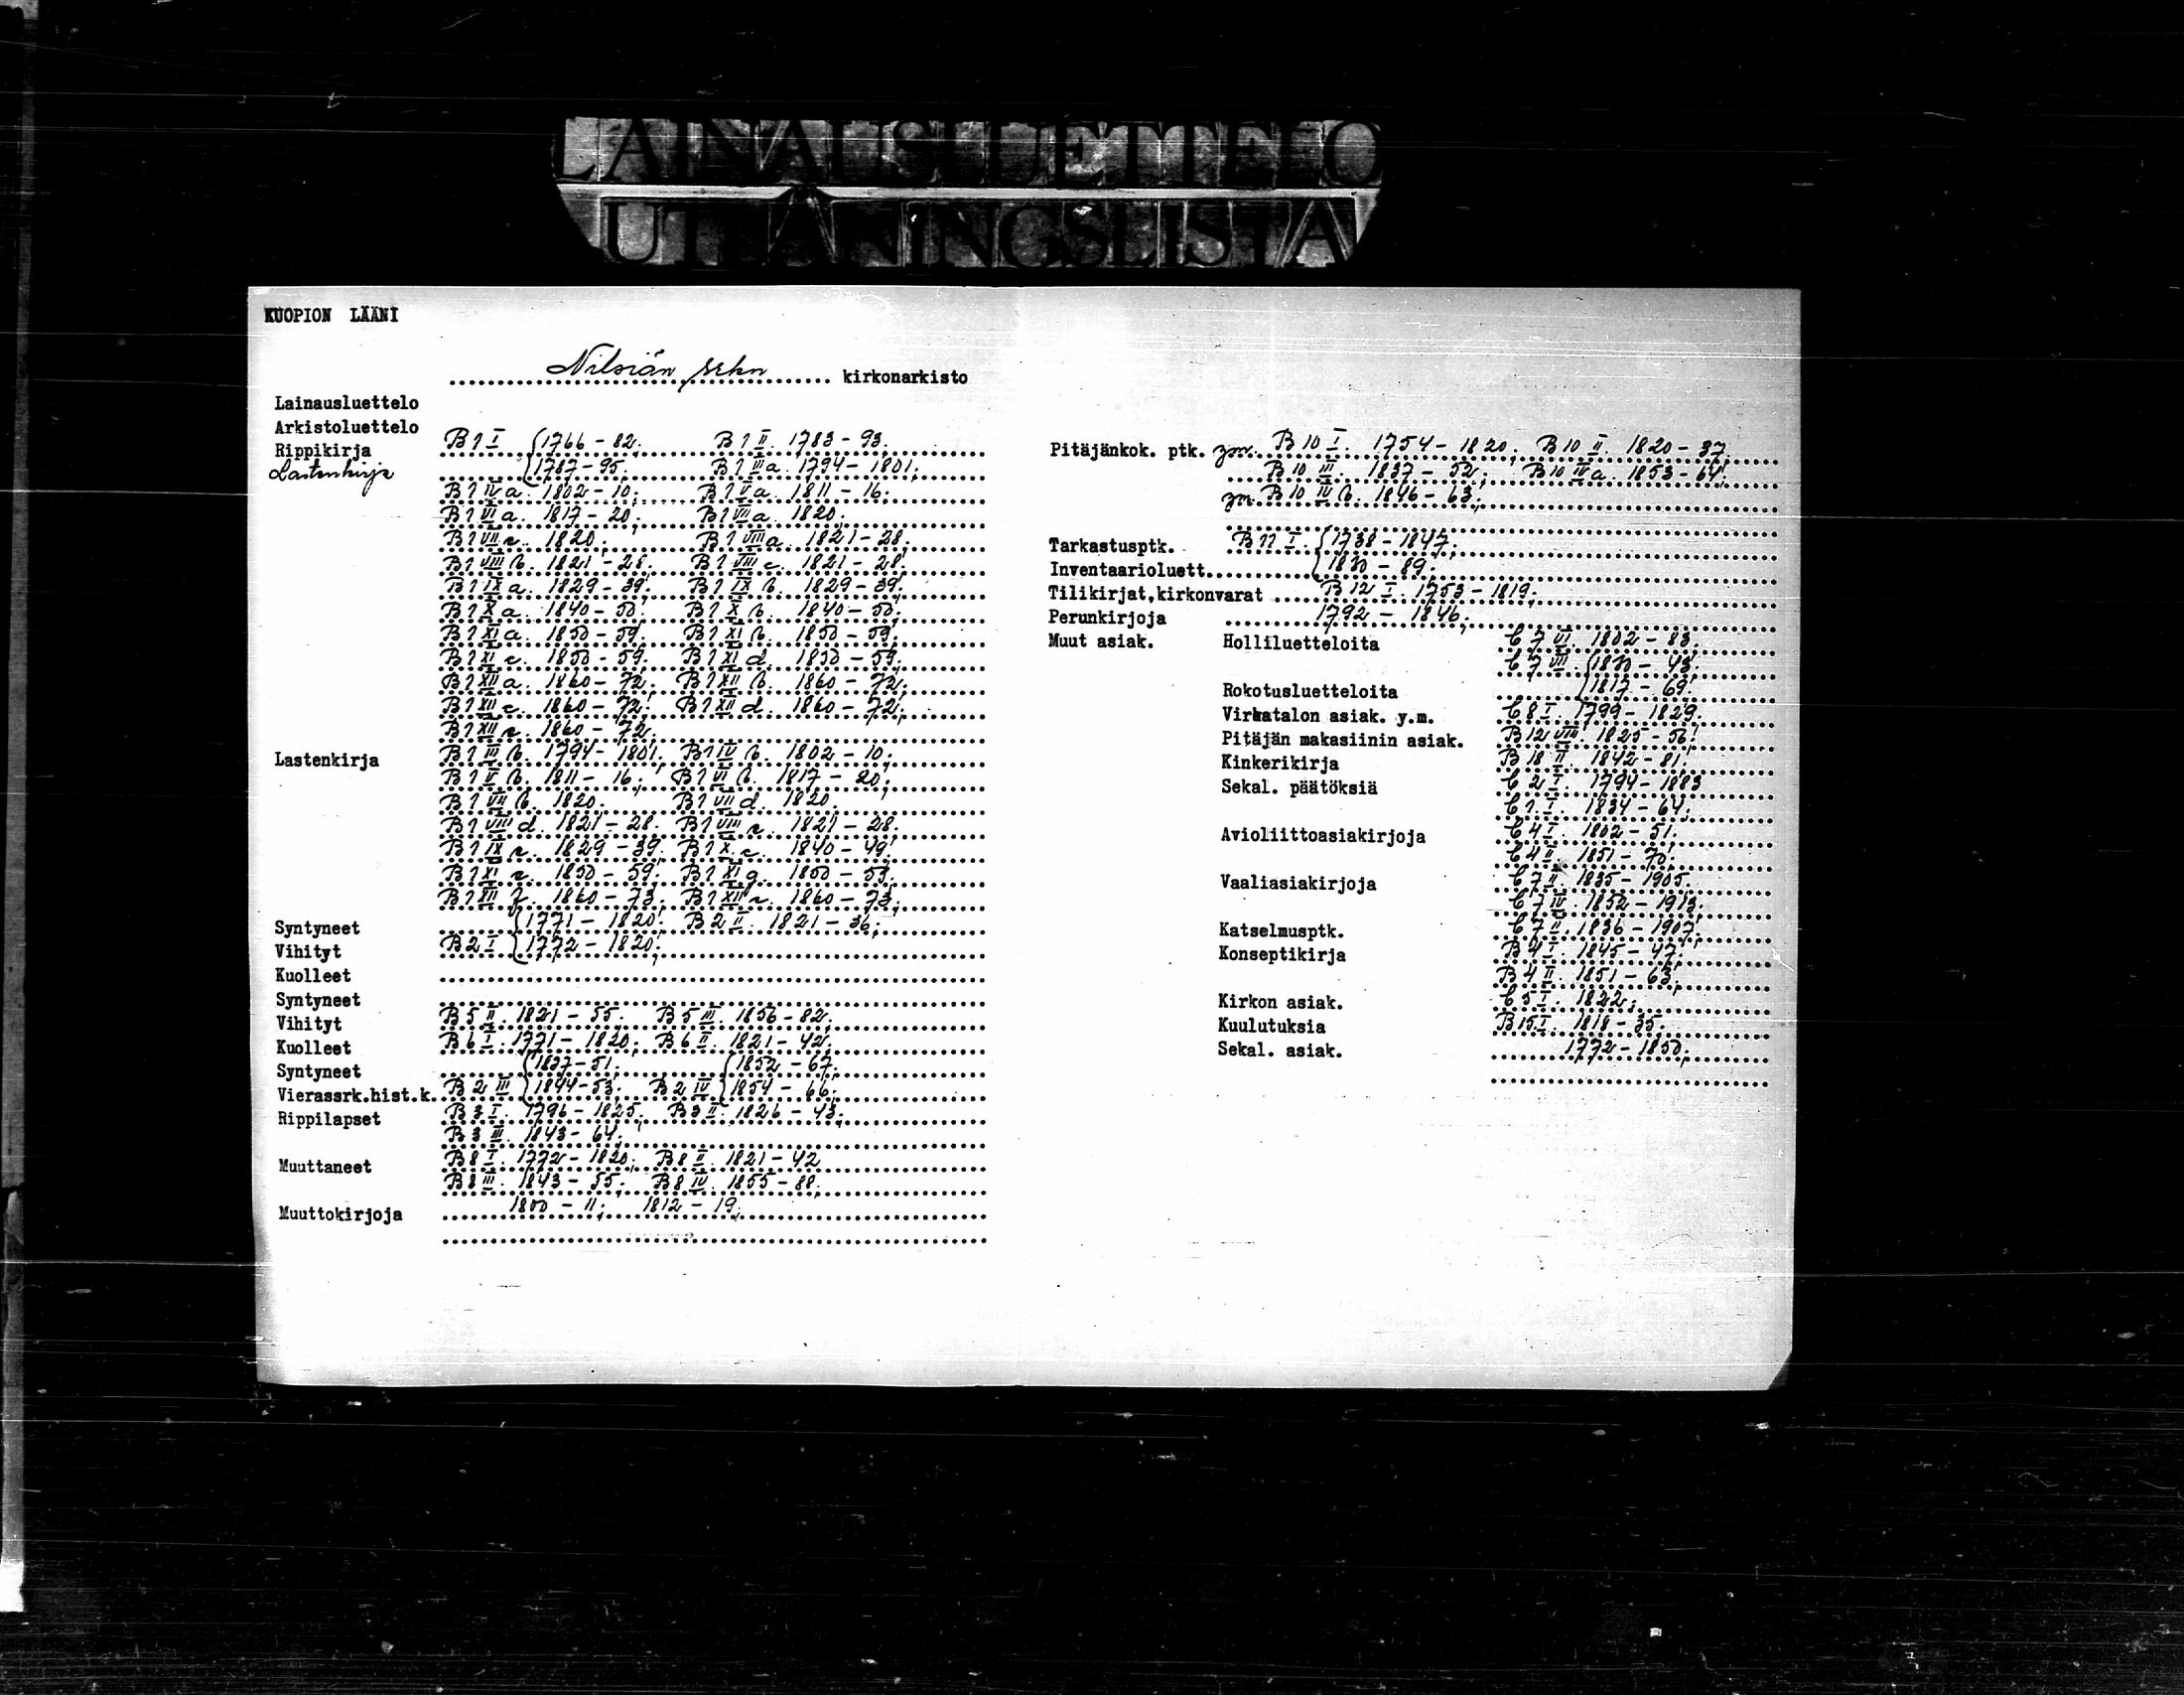 LAINAUSLUETTELO
UTLÅNINGSLISTA
KUOPION LÄÄNI
Nilsiän srkn kirkonarkisto
Lainausluettelo
Arkistoluettelo
Rippikirja B1 I {1766-82. B1 II. 1783-93.
Lastenkirja {1787-95. B1 III a. 1794-1801.
B1 IV a. 1802-10. B1 V a. 1811-16.
B1 VI a. 1817-20. B1 VII a. 1820.
B1 VII c. 1820. B1 VIII a. 1821-28.
B1 VIII b. 1821-28. B1 VIII c. 1821-28.
B1 IX a. 1829-39. B1 IX b. 1829-39.
B1 X a. 1840-50. B1 X b. 1840-50.
B1 XI a. 1850-59. B1 XI b. 1850-59.
B1 XI c. 1850-59. B1 XI d. 1850-59.
B1 XII a. 1860-72. B1 XII b. 1860-72.
B1 XII c. 1860-72. B1 XII d. 1860-72.
B1 XII e. 1860-72.
Lastenkirja B1 III b. 1794-1801. B1 IV b. 1802-10.
B1 V b. 1811-16. B1 VI b. 1817-20.
B1 VII b. 1820. B1 VII d. 1820.
B1 VIII d. 1821-28. B1 VIII e. 1821-28.
B1 IX c. 1829-39. B1 X c. 1840-49.
B1 XI e. 1850-59. B1 XI g. 1850-59.
B1 XII f. 1860-73. B1 XII 1860-73.
Syntyneet {1771-1820. B2 II. 1821-36.
Vihityt B2 I {1772-1820.
Kuolleet
Syntyneet
Vihityt B5 II. 1821-55. B5 III. 1856-82.
Kuolleet B6 I. 1771-1820. B6 II. 1821-42.
Syntyneet {1837-51. {1852-67.
Vierassrk.hist.k. B2 III {1844-53. B2 IV {1854-66.
Rippilapset B3 I. 1796-1825. B3 II. 1826-43.
B3 III. 1843-64.
Muuttaneet B8 I. 1772-1820. B8 II. 1821-42
B8 III. 1843-55. B8 IV. 1855-88.
Muuttokirjoja 1800-11. 1812-19.
Pitäjänkok. ptk. ym. B10 I. 1754-1820. B10 II. 1820-37.
B10 III. 1837-52. B10 IV a. 1853-64.
ym. B10 IV b. 1846-63.
Tarkastusptk. B11 I. {1738-1847.
Inventaarioluett. {1830-89.
Tilikirjat,kirkonvarat B12 I. 1753-1819.
Perunkirjoja 1792-1846.
Muut asiak. Holliluetteloita C7 VI. 1802-83.
C7 VIII. {1830-43.
Rokotusluetteloita {1817-69.
Virkatalon asiak. y.m. C8 I. 1799-1829.
Pitäjän makasiinin asiak. B12 VIII. 1825-56.
Kinkerikirja B18 II. 1842-81.
Sekal. päätöksiä C2 I. 1794-1883
C1 I. 1834-64.
Avioliittoasiakirjoja C4 I. 1802-51.
C4 II. 1851-70.
Vaaliasiakirjoja C7 II. 1835-1905.
C7 IV. 1852-1913.
Katselmusptk. C7 II. 1836-1907.
Konseptikirja B4 I. 1845-47.
B4 II. 1851-63.
Kirkon asiak. C5 I. 1822.
Kuulutuksia B15 I. 1818-35.
Sekal. asiak. 1772-1850.